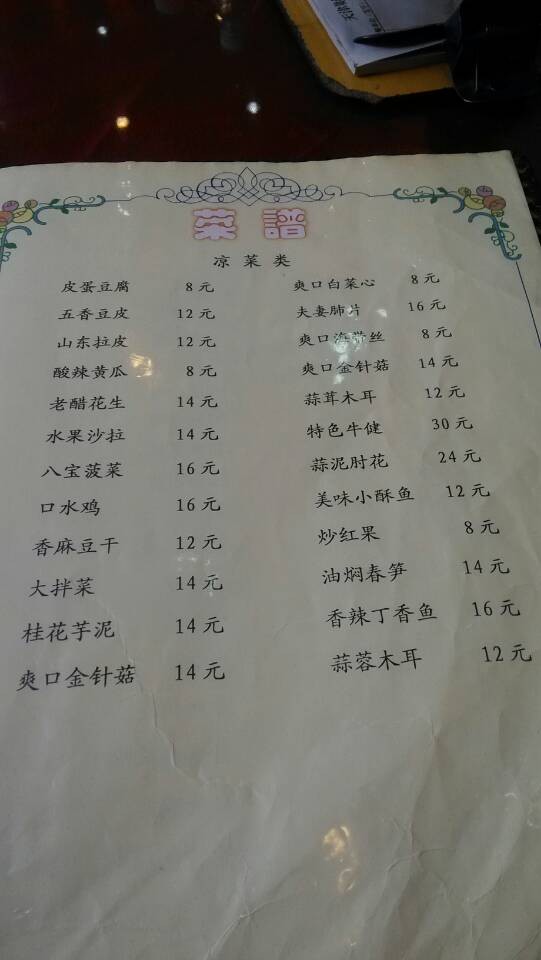 菜譜
凉菜类
皮蛋豆腐 8元
五香豆皮 12元
山东拉皮 12元
酸辣黄瓜 8元
老醋花生 14元
水果沙拉 14元
八宝菠菜 16元
口水鸡 16元
香麻豆干 12元
大拌菜 14元
桂花芋泥 14元
爽口金针菇 14元
爽口白菜心 8元
夫妻肺片 16元
爽口海带丝 8元
爽口金针菇 14元
蒜茸木耳 12元
特色牛健 30元
蒜泥肘花 24元
美味小酥鱼 12元
炒红果 8元
油焖春笋 14元
香辣丁香鱼 16元
蒜蓉木耳 12元